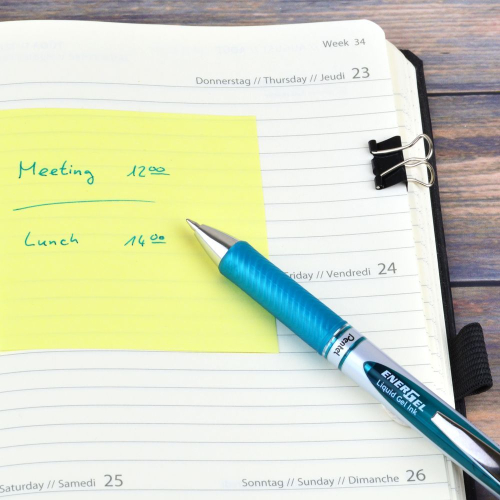 Week 34
Donnerstag // Thursday // Jeudi 23
Meeting 12⁰⁰
Lunch 14⁰⁰
Friday // Vendredi 24
Pentel
ENERGEL
Liquid Gel Ink
Saturday // Samedi 25
Sonntag // Sunday // Dimanche 26